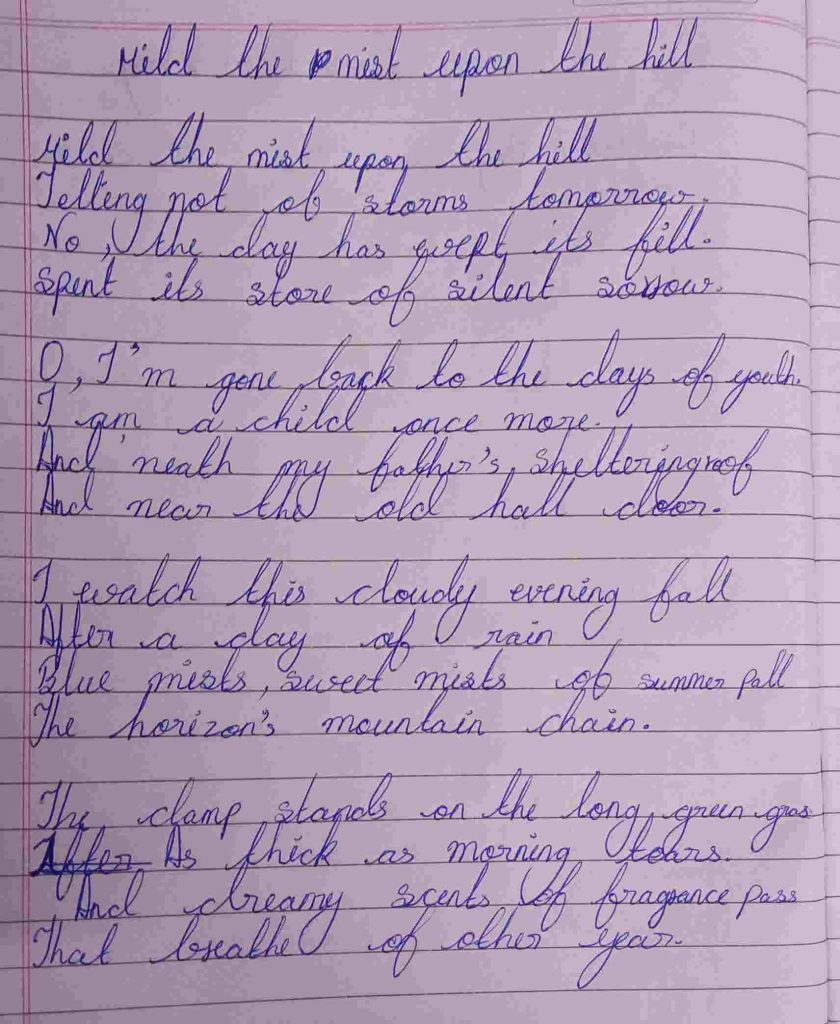 Mild the mist upon the hill
Mild the mist upon the hill
Telling not of storms tomorrow.
No, the day has wept its fill.
Spent its store of silent sorrow.
O, I'm gone back to the days of youth.
I am a child once more.
And 'neath my father's shelteringroof
And near the old hall door.
I watch this cloudy evening fall
After a day of rain
Blue mists, sweet mists of summer pall
The horizon's mountain chain.
The damp stands on the long green gras
After As thick as morning tears.
And dreamy scents of fragrance pass
That breathe of other year.